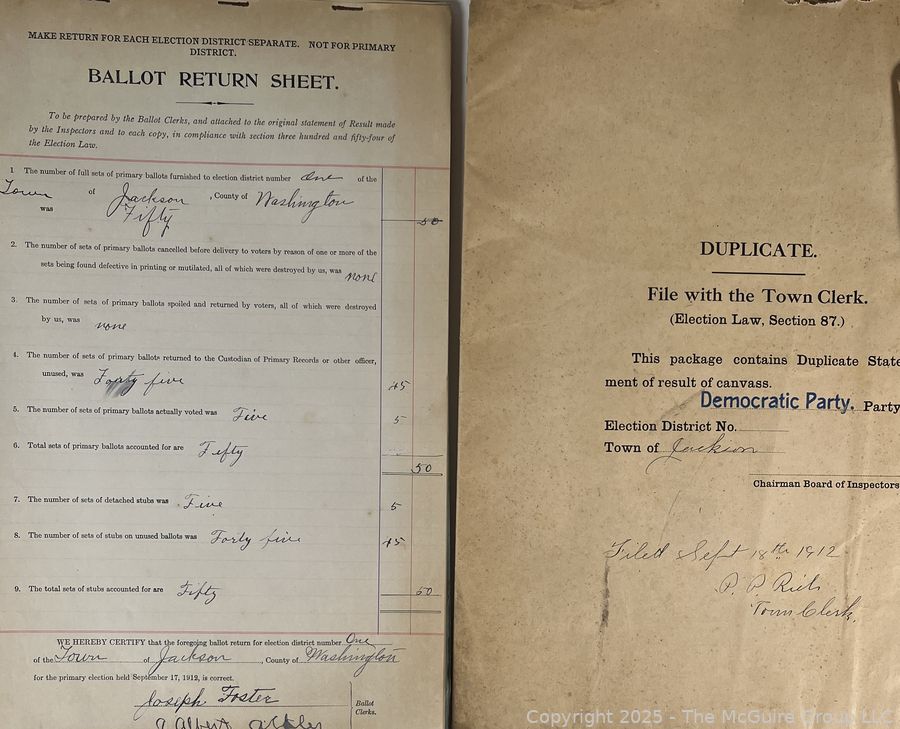 MAKE RETURN FOR EACH ELECTION DISTRICT SEPARATE. NOT FOR PRIMARY
DISTRICT.
BALLOT RETURN SHEET.
To be prepared by the Ballot Clerks, and attached to the original statement of Result made
by the Inspectors and to each copy, in compliance with section three hundred and fifty-four of
the Election Law.
1 The number of full sets of primary ballots furnished to election district number One of the
Town of Jackson, County of Washington
was Fifty 50
2. The number of sets of primary ballots cancelled before delivery to voters by reason of one or more of the
sets being found defective in printing or mutilated, all of which were destroyed by us, was none
3. The number of sets of primary ballots spoiled and returned by voters, all of which were destroyed
by us, was none
4. The number of sets of primary ballots returned to the Custodian of Primary Records or other officer,
unused, was Forty five 45
5. The number of sets of primary ballots actually voted was Five 5
6. Total sets of primary ballots accounted for are Fifty
50
7. The number of sets of detached stubs was Five 5
8. The number of sets of stubs on unused ballots was Forty five 45
9. The total sets of stubs accounted for are Fifty 50
WE HEREBY CERTIFY that the foregoing ballot return for election district number One
of the Town of Jackson, County of Washington
for the primary election held September 17, 1912, is correct.
Joseph Foster
Ballot
Clerks.
Albert
DUPLICATE.
File with the Town Clerk.
(Election Law, Section 87.)
This package contains Duplicate State-
ment of result of canvass.
Democratic Party. Party
Election District No.
Town of Jackson
Chairman Board of Inspectors
Filed Sept 18th 1912
P. P. Rich
Town Clerk.
Copyright 2025 - The McGuire Group LLC